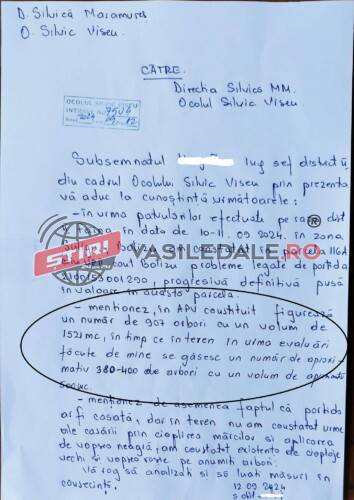 D. Silvică Maramureș
O. Silvic Vișeu
CĂTRE
Direcția Silvică MM.
Ocolul Silvic Vișeu.
OCOLUL SILVIC VIȘEU
INTRARE
7506
2024 09 12
Subsemnatul ing șef district
din cadrul Ocolului Silvic Vișeu prin prezenta
vă aduc la cunoștință următoarele:
- în urma patrulărilor efectuate pe raza dist
în data de 10-11.09.2024. în zona
am constatat în 116A
probleme legale de partida
2100153001290, progresivă definitivă pusă
în valoare în această parcelă.
ȘTIRI VASILEDALE.RO
- menționez, în APV constituit figurează
un număr de 907 arbori cu un volum de
1521mc, în timp ce în teren în urma evaluări
făcute de mine se găsesc un număr de aproxi-
mativ 380-400 de arbori cu un volum de aproximativ
- menționez de asemenea faptul că partida
ar fi casată, dar în teren nu am constatat urme
ale casării prin cioplirea mărcilor și aplicarea
de vopsea neagră, am constatat existența de cioplaje
vechi și vopsea roșie pe anumiți arbori.
Vă rog să analizați și să luați măsuri în
consecință.
12 09 2024